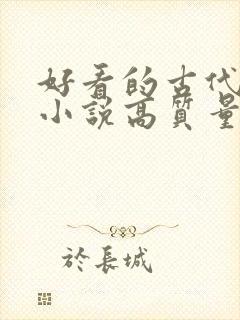 好看的古代
小説高質量
於長城